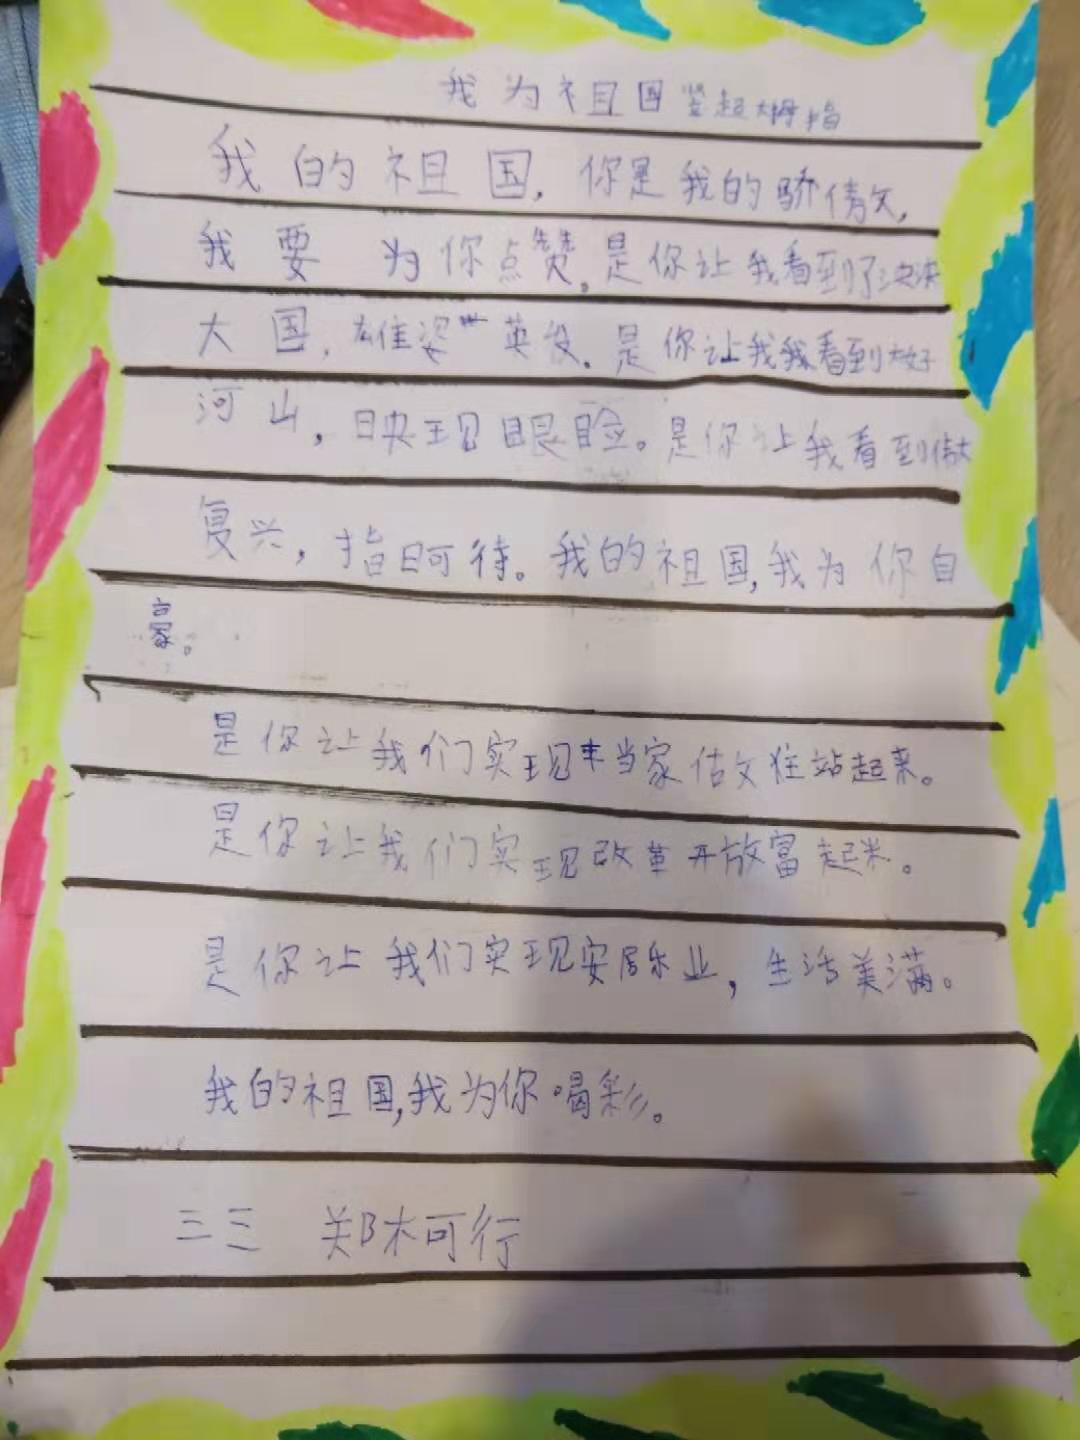 我为祖国竖起大拇指
我的祖国，你是我的骄傲，
我要为你点赞。是你让我看到了泱泱
大国，雄姿英发。是你让我我看到大好
河山，映现眼睑。是你让我看到
复兴，指日可待。我的祖国，我为你自
豪。
是你让我们实现当家站起来。
是你让我们实现改革开放富起来。
是你让我们实现安居乐业，生活美满。
我的祖国，我为你喝彩。
三三 郑木可行